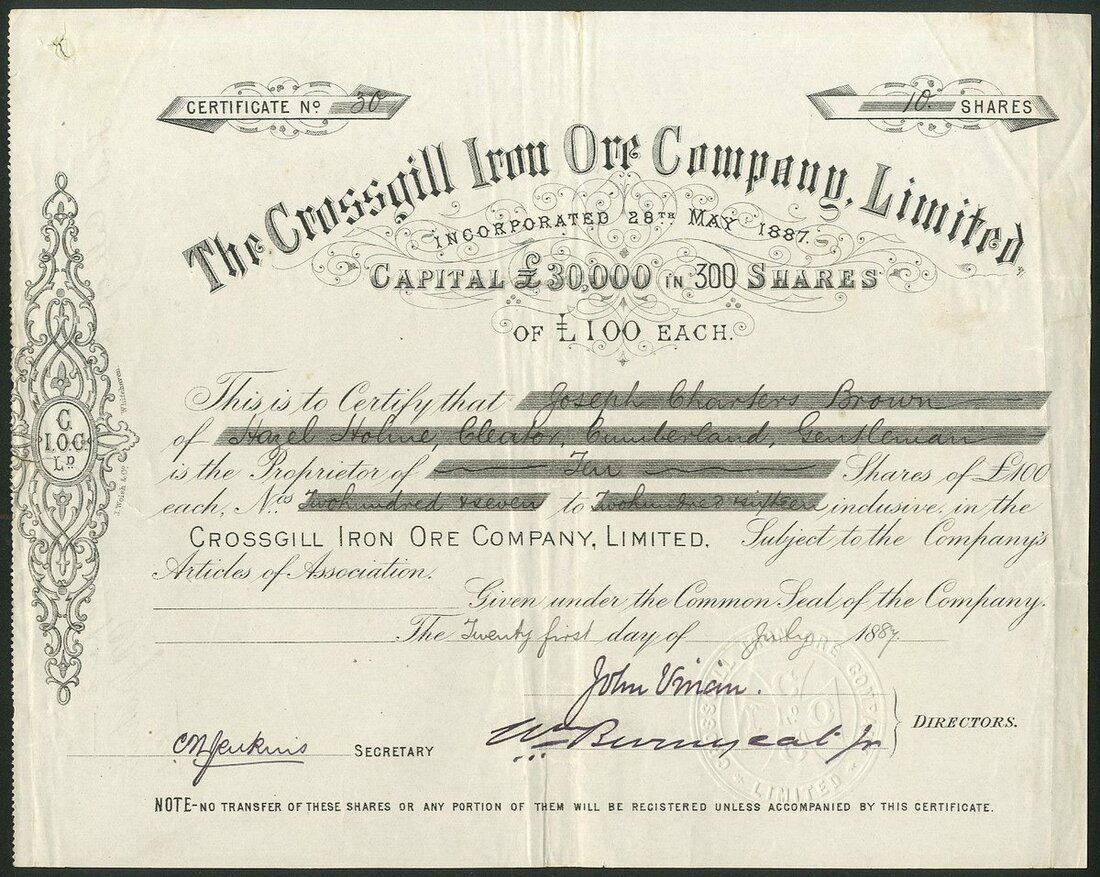 CERTIFICATE No 30
10 SHARES
The Crossgill Iron Ore Company, Limited
INCORPORATED 28TH MAY 1887.
CAPITAL £30,000 IN 300 SHARES
OF £100 EACH.
This is to Certify that Joseph Charters Brown
of Hazel Holme, Cleator, Cumberland, Gentleman
is the Proprietor of Ten Shares of £100
each, Nos. Twohundred & seven to Twohundred & sixteen inclusive, in the
CROSSGILL IRON ORE COMPANY, LIMITED, Subject to the Company's
Articles of Association.
Given under the Common Seal of the Company.
The Twenty first day of July 1887.
John Vivian.
Wm Burnyeat Jr
DIRECTORS.
C N Jenkins SECRETARY
NOTE-NO TRANSFER OF THESE SHARES OR ANY PORTION OF THEM WILL BE REGISTERED UNLESS ACCOMPANIED BY THIS CERTIFICATE.
C.
I.O.C.
LD.
J. Welsh & Co. Whitehaven.
CROSSGILL IRON ORE COMPANY
LIMITED